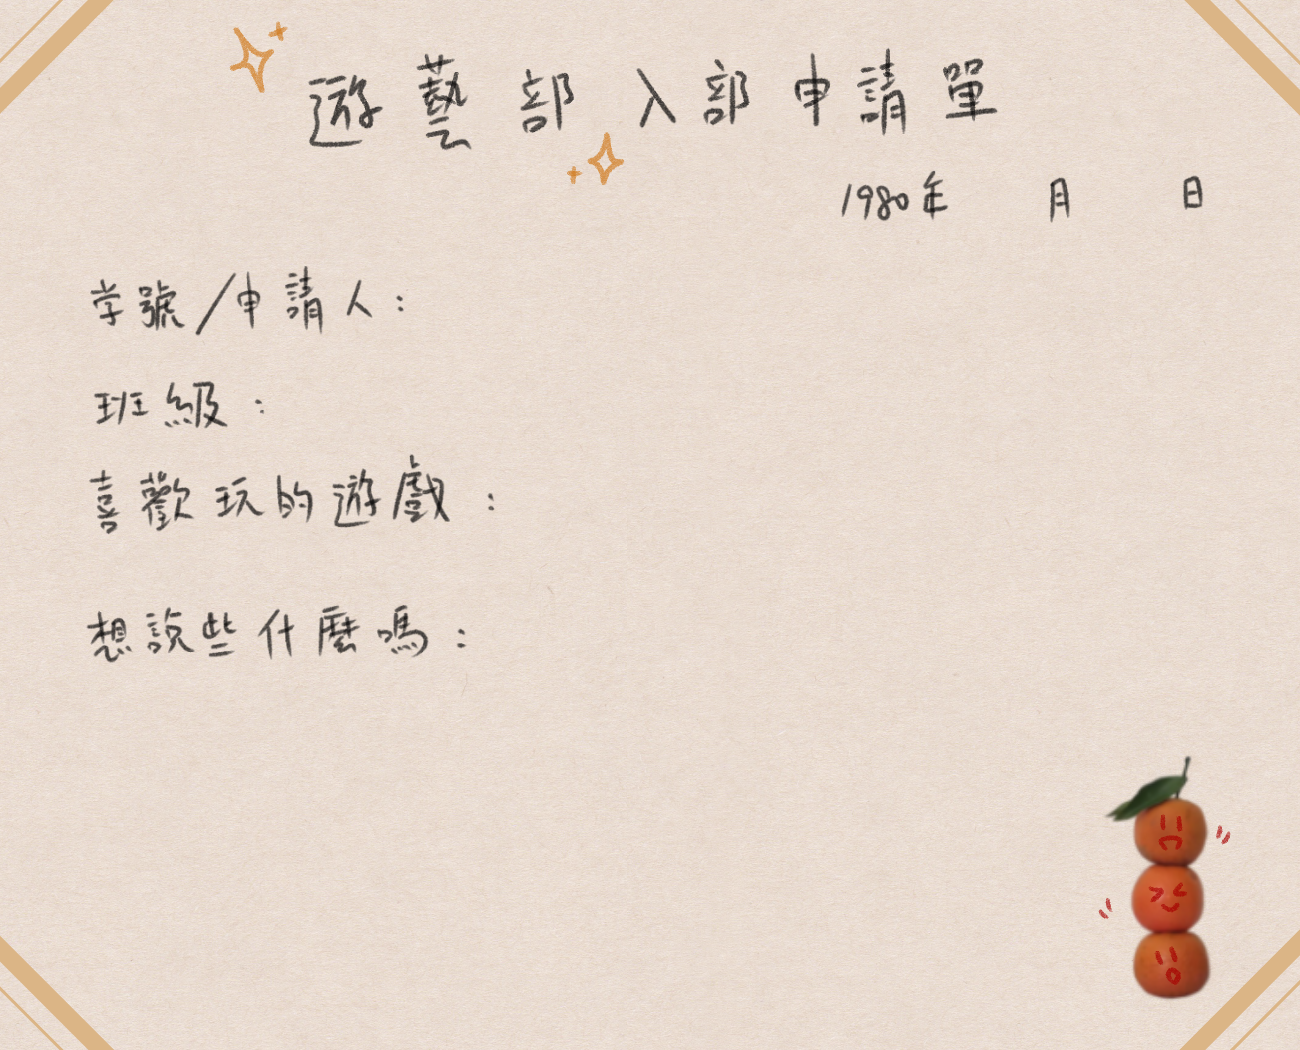 遊藝部入部申請單
1980年 月 日
学號/申請人：
班級：
喜歡玩的遊戲：
想說些什麼嗎：